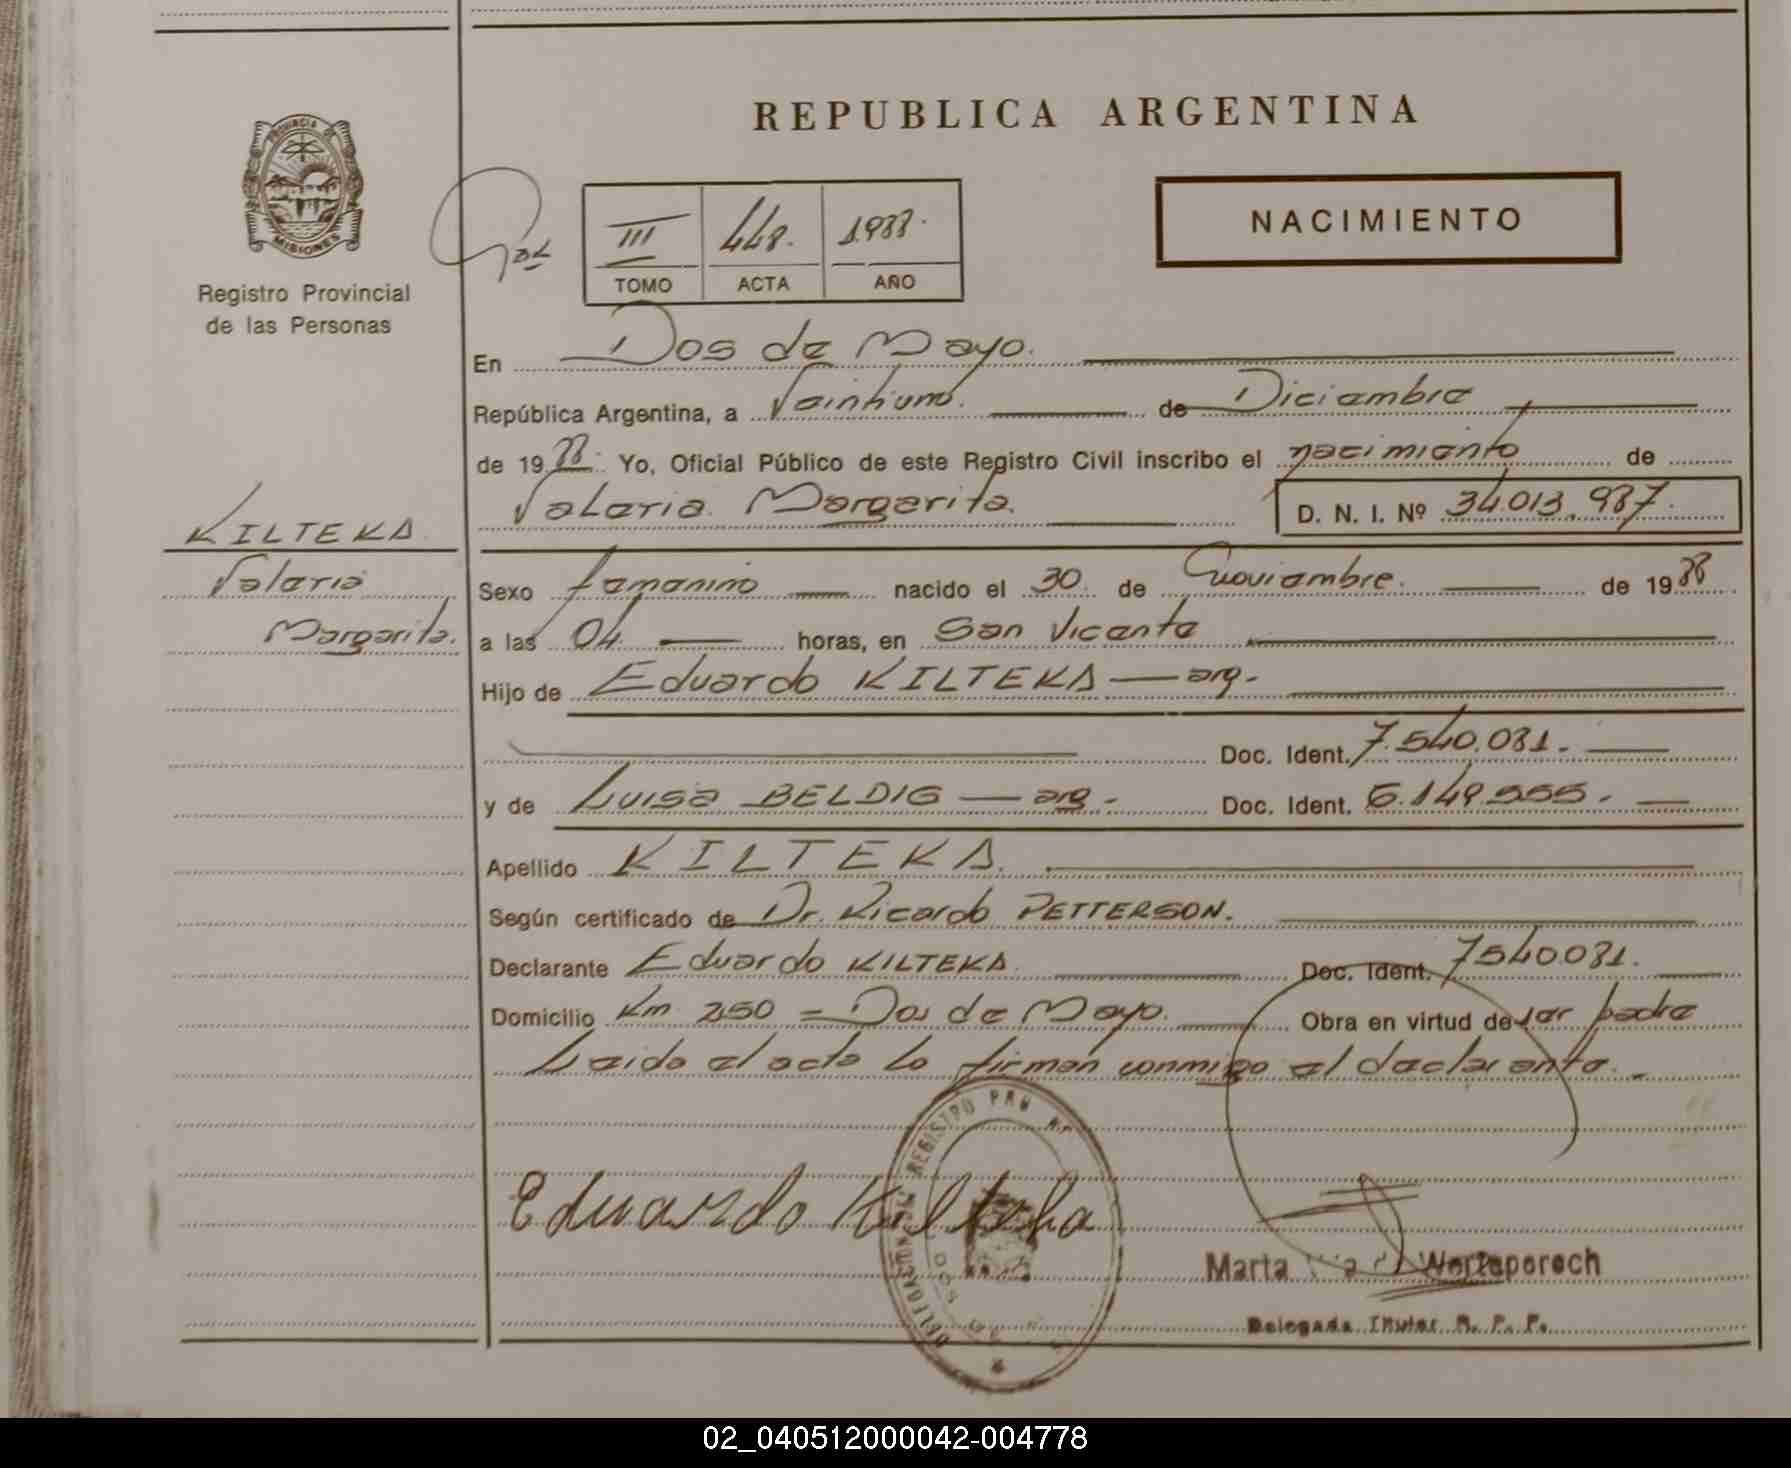 REPUBLICA ARGENTINA
PROVINCIA DE
MISIONES
Registro Provincial
de las Personas
NACIMIENTO
III 448. 1988.
TOMO ACTA AÑO
En Dos de Mayo.
República Argentina, a Veintiuno. de Diciembre
de 1988. Yo, Oficial Público de este Registro Civil inscribo el nacimiento de
Valeria Margarita. D. N. I. Nº 34.013.987.
KILTEKA
Valeria
Margarita.
Sexo femenino nacido el 30. de Noviembre. de 1988
a las 04 horas, en San Vicente
Hijo de Eduardo KILTEKA — arg.
Doc. Ident. 7.540.081.
y de Luisa BELDIG — arg. Doc. Ident. 6.149.555.
Apellido KILTEKA.
Según certificado de Dr. Ricardo PETTERSON.
Declarante Eduardo KILTEKA. Doc. Ident. 7540081.
Domicilio Km 250 = Dos de Mayo. Obra en virtud de ser padre
Leida el acta lo firman conmigo el declarante.
Eduardo Kilteka
REGISTRO
Marta Werteperech
Delegada Titular R. P. P.
02_040512000042-004778